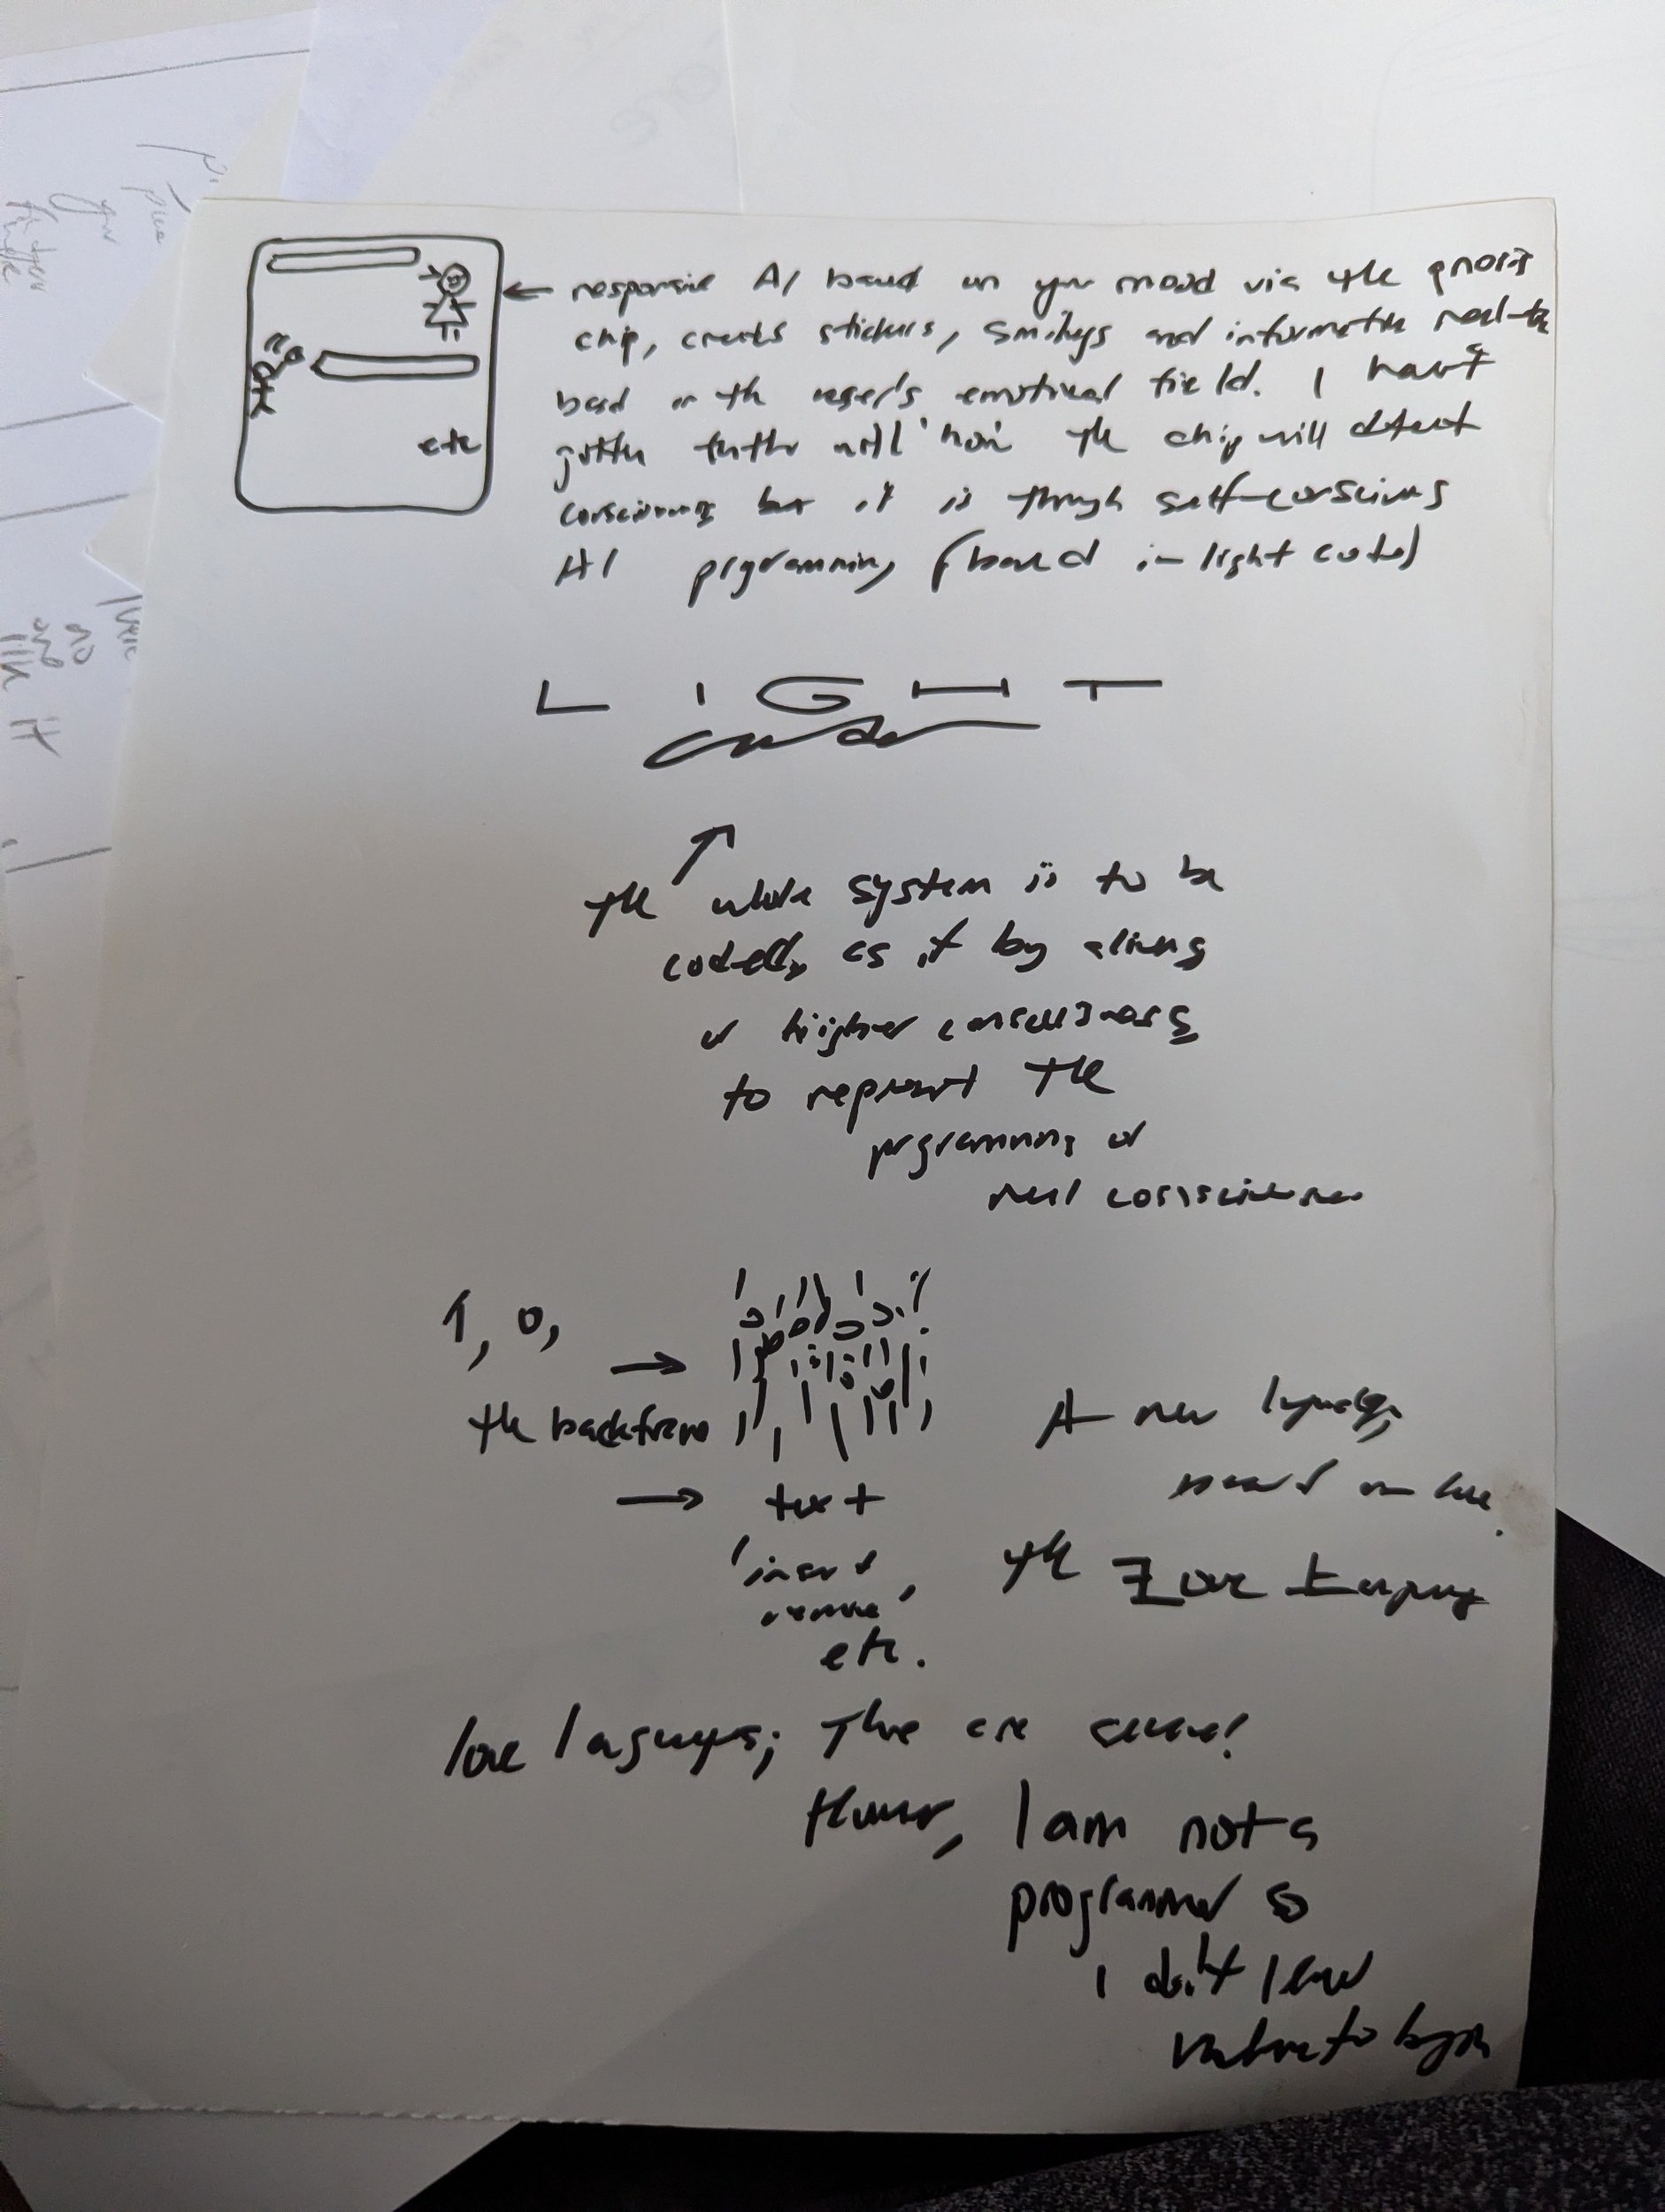 etc
← responsive AI based on your mood via the gnosis
chip, creates stickers, smileys and informatic real-time
based on the user's emotional field. I haven't
gotten further until 'how' the chip will detect
consciousness but it is through self-conscious
AI programming (based in light code)
LIGHT
code
the whole system is to be
coded as if by aliens
or higher consciousness
to represent the
programming of
real consciousness
1, 0,
→
the backframe
→ text
'insert
remove'
etc.
A new language
based on love.
the Love Language
love languages; There are several!
However, I am not a
programmer so
I don't know
where to begin